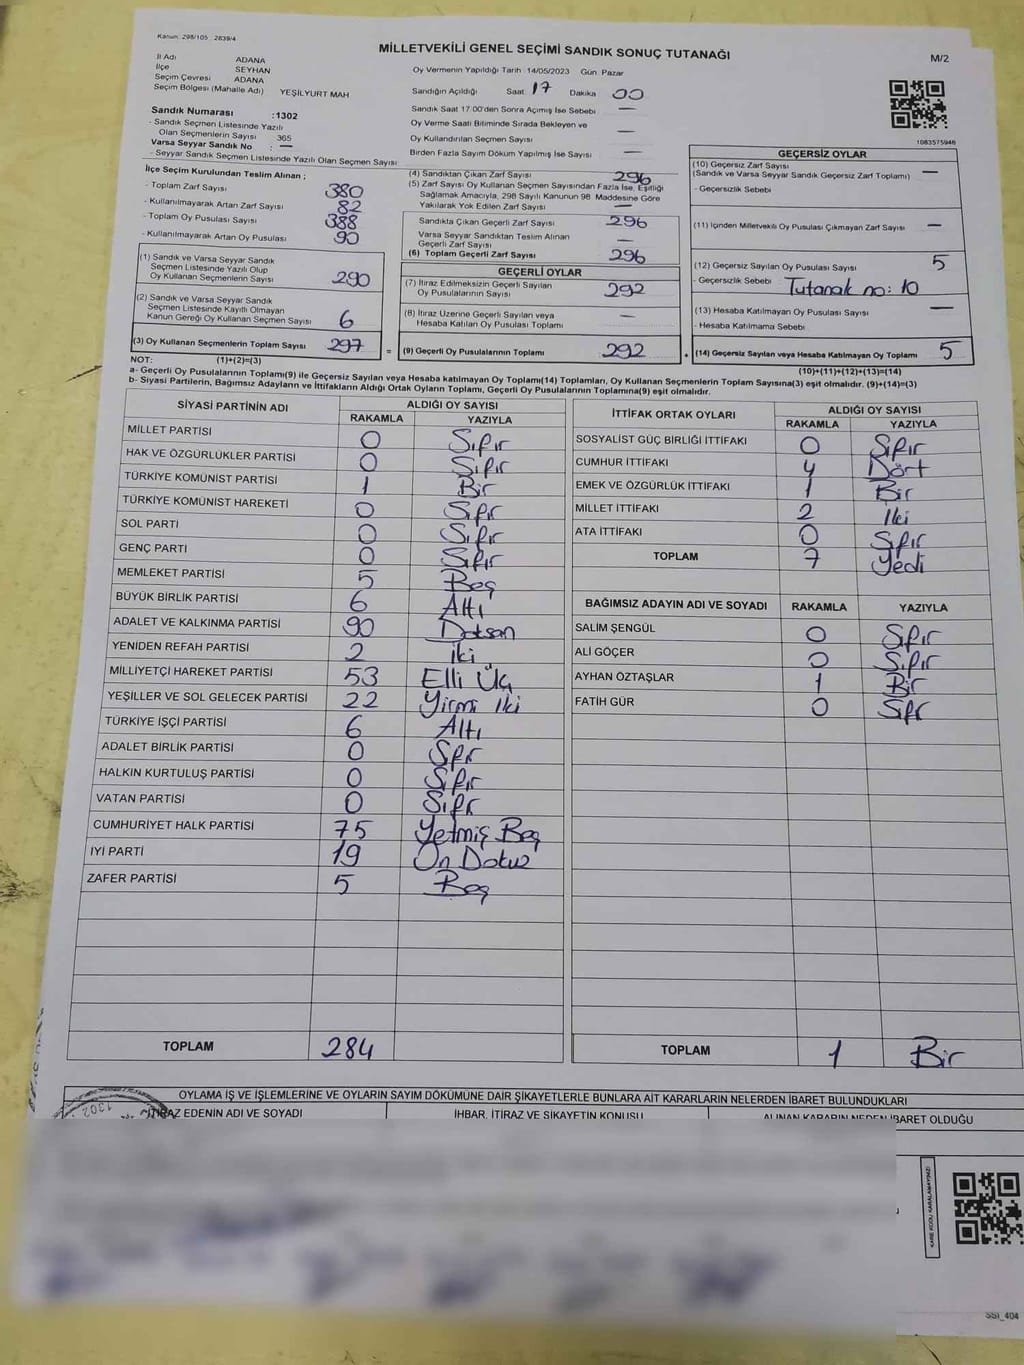 Kanun: 298/105 2839/4
MİLLETVEKİLİ GENEL SEÇİMİ SANDIK SONUÇ TUTANAĞI
M/2
İl Adı ADANA
İlçe SEYHAN
Seçim Çevresi ADANA
Seçim Bölgesi (Mahalle Adı) YEŞİLYURT MAH
Oy Vermenin Yapıldığı Tarih : 14/05/2023 Gün: Pazar
Sandığın Açıldığı Saat 17 Dakika 00
Sandık Saat 17:00'den Sonra Açımış İse Sebebi —
Oy Verme Saati Bitiminde Sırada Bekleyen ve
Oy Kullandırılan Seçmen Sayısı —
Birden Fazla Sayım Döküm Yapılmış İse Sayısı —
Sandık Numarası :1302
- Sandık Seçmen Listesinde Yazılı
Olan Seçmenlerin Sayısı 365
Varsa Seyyar Sandık No : —
- Seyyar Sandık Seçmen Listesinde Yazılı Olan Seçmen Sayısı
1083575946
İlçe Seçim Kurulundan Teslim Alınan ;
- Toplam Zarf Sayısı 380
- Kullanılmayarak Artan Zarf Sayısı 82
- Toplam Oy Pusulası Sayısı 388
- Kullanılmayarak Artan Oy Pusulası 90
(1) Sandık ve Varsa Seyyar Sandık
Seçmen Listesinde Yazılı Olup
Oy Kullanan Seçmenlerin Sayısı 290
(2) Sandık ve Varsa Seyyar Sandık
Seçmen Listesinde Kayıtlı Olmayan
Kanun Gereği Oy Kullanan Seçmen Sayısı 6
(3) Oy Kullanan Seçmenlerin Toplam Sayısı 297
(4) Sandıktan Çıkan Zarf Sayısı 296
(5) Zarf Sayısı Oy Kullanan Seçmen Sayısından Fazla İse, Eşitliği
Sağlamak Amacıyla, 298 Sayılı Kanunun 98. Maddesine Göre
Yakılarak Yok Edilen Zarf Sayısı —
Sandıkta Çıkan Geçerli Zarf Sayısı 296
Varsa Seyyar Sandıktan Teslim Alınan
Geçerli Zarf Sayısı —
(6) Toplam Geçerli Zarf Sayısı 296
GEÇERLİ OYLAR
(7) İtiraz Edilmeksizin Geçerli Sayılan
Oy Pusulalarının Sayısı 292
(8) İtiraz Üzerine Geçerli Sayılan veya
Hesaba Katılan Oy Pusulası Toplamı —
= (9) Geçerli Oy Pusulalarının Toplamı 292
GEÇERSİZ OYLAR
(10) Geçersiz Zarf Sayısı
(Sandık ve Varsa Seyyar Sandık Geçersiz Zarf Toplamı) —
- Geçersizlik Sebebi
(11) İçinden Milletvekili Oy Pusulası Çıkmayan Zarf Sayısı —
(12) Geçersiz Sayılan Oy Pusulası Sayısı 5
- Geçersizlik Sebebi Tutanak no: 10
(13) Hesaba Katılmayan Oy Pusulası Sayısı —
- Hesaba Katılmama Sebebi
+ (14) Geçersiz Sayılan veya Hesaba Katılmayan Oy Toplamı 5
NOT: (1)+(2)=(3)
(10)+(11)+(12)+(13)=(14)
a- Geçerli Oy Pusulalarının Toplamı(9) ile Geçersiz Sayılan veya Hesaba katılmayan Oy Toplamı(14) Toplamları, Oy Kullanan Seçmenlerin Toplam Sayısına(3) eşit olmalıdır. (9)+(14)=(3)
b- Siyasi Partilerin, Bağımsız Adayların ve İttifakların Aldığı Ortak Oyların Toplamı, Geçerli Oy Pusulalarının Toplamına(9) eşit olmalıdır.
SİYASİ PARTİNİN ADI ALDIĞI OY SAYISI
RAKAMLA YAZIYLA
MİLLET PARTİSİ 0 Sıfır
HAK VE ÖZGÜRLÜKLER PARTİSİ 0 Sıfır
TÜRKİYE KOMÜNİST PARTİSİ 1 Bir
TÜRKİYE KOMÜNİST HAREKETİ 0 Sıfır
SOL PARTİ 0 Sıfır
GENÇ PARTİ 0 Sıfır
MEMLEKET PARTİSİ 5 Beş
BÜYÜK BİRLİK PARTİSİ 6 Altı
ADALET VE KALKINMA PARTİSİ 90 Doksan
YENİDEN REFAH PARTİSİ 2 İki
MİLLİYETÇİ HAREKET PARTİSİ 53 Elli Üç
YEŞİLLER VE SOL GELECEK PARTİSİ 22 Yirmi İki
TÜRKİYE İŞÇİ PARTİSİ 6 Altı
ADALET BİRLİK PARTİSİ 0 Sıfır
HALKIN KURTULUŞ PARTİSİ 0 Sıfır
VATAN PARTİSİ 0 Sıfır
CUMHURİYET HALK PARTİSİ 75 Yetmiş Beş
İYİ PARTİ 19 On Dokuz
ZAFER PARTİSİ 5 Beş
TOPLAM 284
İTTİFAK ORTAK OYLARI ALDIĞI OY SAYISI
RAKAMLA YAZIYLA
SOSYALİST GÜÇ BİRLİĞİ İTTİFAKI 0 Sıfır
CUMHUR İTTİFAKI 4 Dört
EMEK VE ÖZGÜRLÜK İTTİFAKI 1 Bir
MİLLET İTTİFAKI 2 İki
ATA İTTİFAKI 0 Sıfır
TOPLAM 7 Yedi
BAĞIMSIZ ADAYIN ADI VE SOYADI RAKAMLA YAZIYLA
SALİM ŞENGÜL 0 Sıfır
ALİ GÖÇER 0 Sıfır
AYHAN ÖZTAŞLAR 1 Bir
FATİH GÜR 0 Sıfır
TOPLAM 1 Bir
OYLAMA İŞ VE İŞLEMLERİNE VE OYLARIN SAYIM DÖKÜMÜNE DAİR ŞİKAYETLERLE BUNLARA AİT KARARLARIN NELERDEN İBARET BULUNDUKLARI
İTİRAZ EDENİN ADI VE SOYADI İHBAR, İTİRAZ VE ŞİKAYETİN KONUSU ALINAN KARARIN NEDEN İBARET OLDUĞU
1302
KARE KODU KARALAMAYINIZ!
SSİ_404